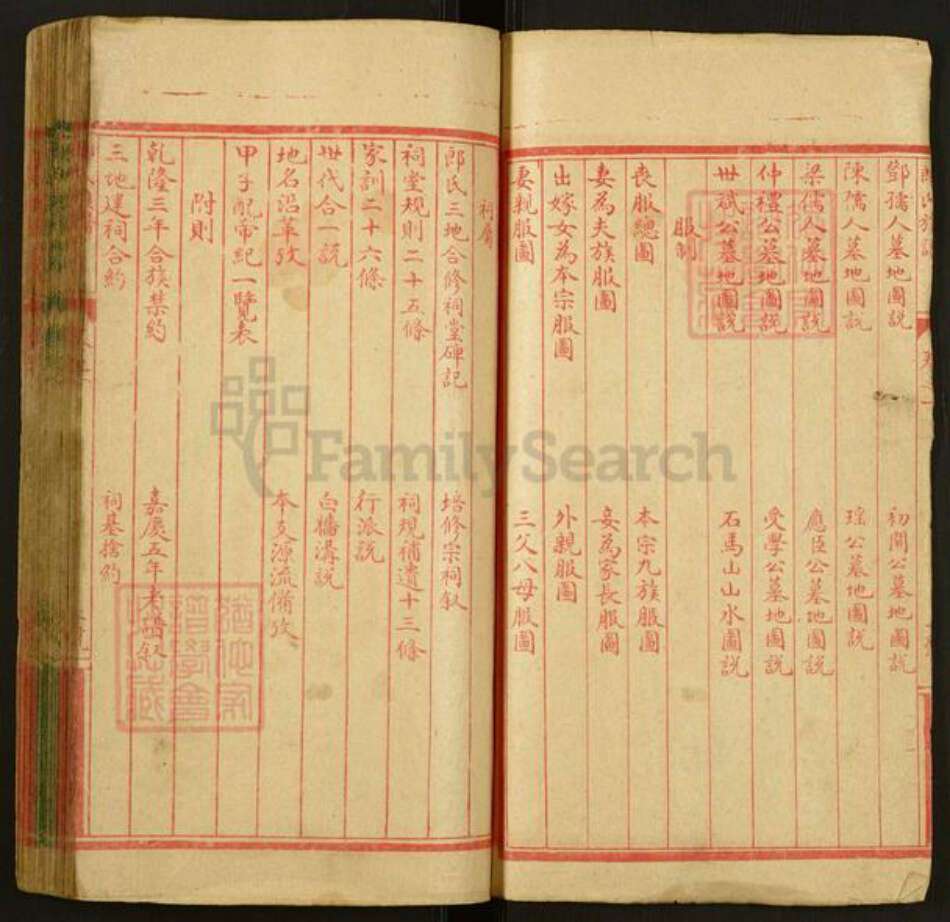 鄧孺人墓地圖説 初開公墓地圖説
陳孺人墓地圖説 瑶公墓地圖説
梁孺人墓地圖説 應臣公墓地圖説
仲禮公墓地圖説 受學公墓地圖説
世斌公墓地圖説 石馬山山水圖説
服制
喪服總圖 本宗九族服圖
妻為夫族服圖 妾為家長服圖
出嫁女為本宗服圖 外親服圖
妻親服圖 三父八母服圖
祠屬
郎氏三地合修祠堂碑記 培修宗祠叙
祠堂規則二十五條 祠規補遺十三條
家訓二十六條 行派説
世代合一説 白蟮溝説
地名沿革攷 本支源流備攷
甲子配帝紀一覽表
附則
乾隆三年合族禁約 嘉慶五年老譜叙
三地建祠合約 祠基捨約
FamilySearch